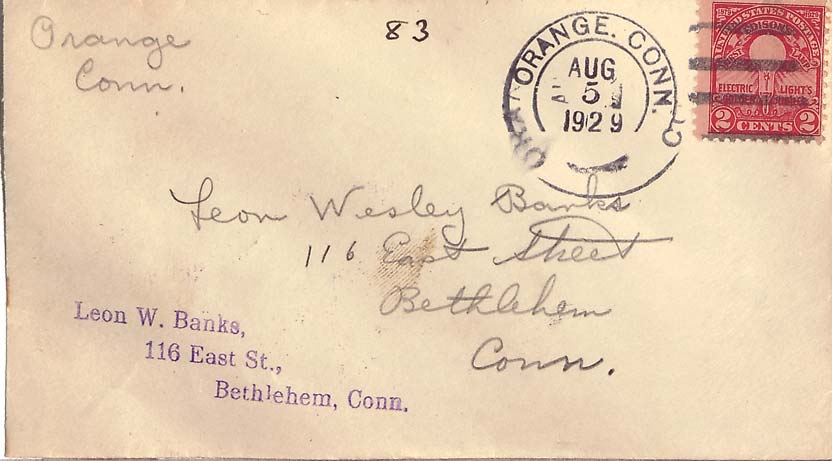 Orange
Conn.
83
ORANGE. CONN.
AUG
5
1929
1879 1929
UNITED STATES POSTAGE
EDISON'S
FIRST LAMP
ELECTRIC LIGHT'S
GOLDEN JUBILEE
2 CENTS 2
Leon Wesley Banks
116 East Street
Bethlehem
Conn.
Leon W. Banks,
116 East St.,
Bethlehem, Conn.